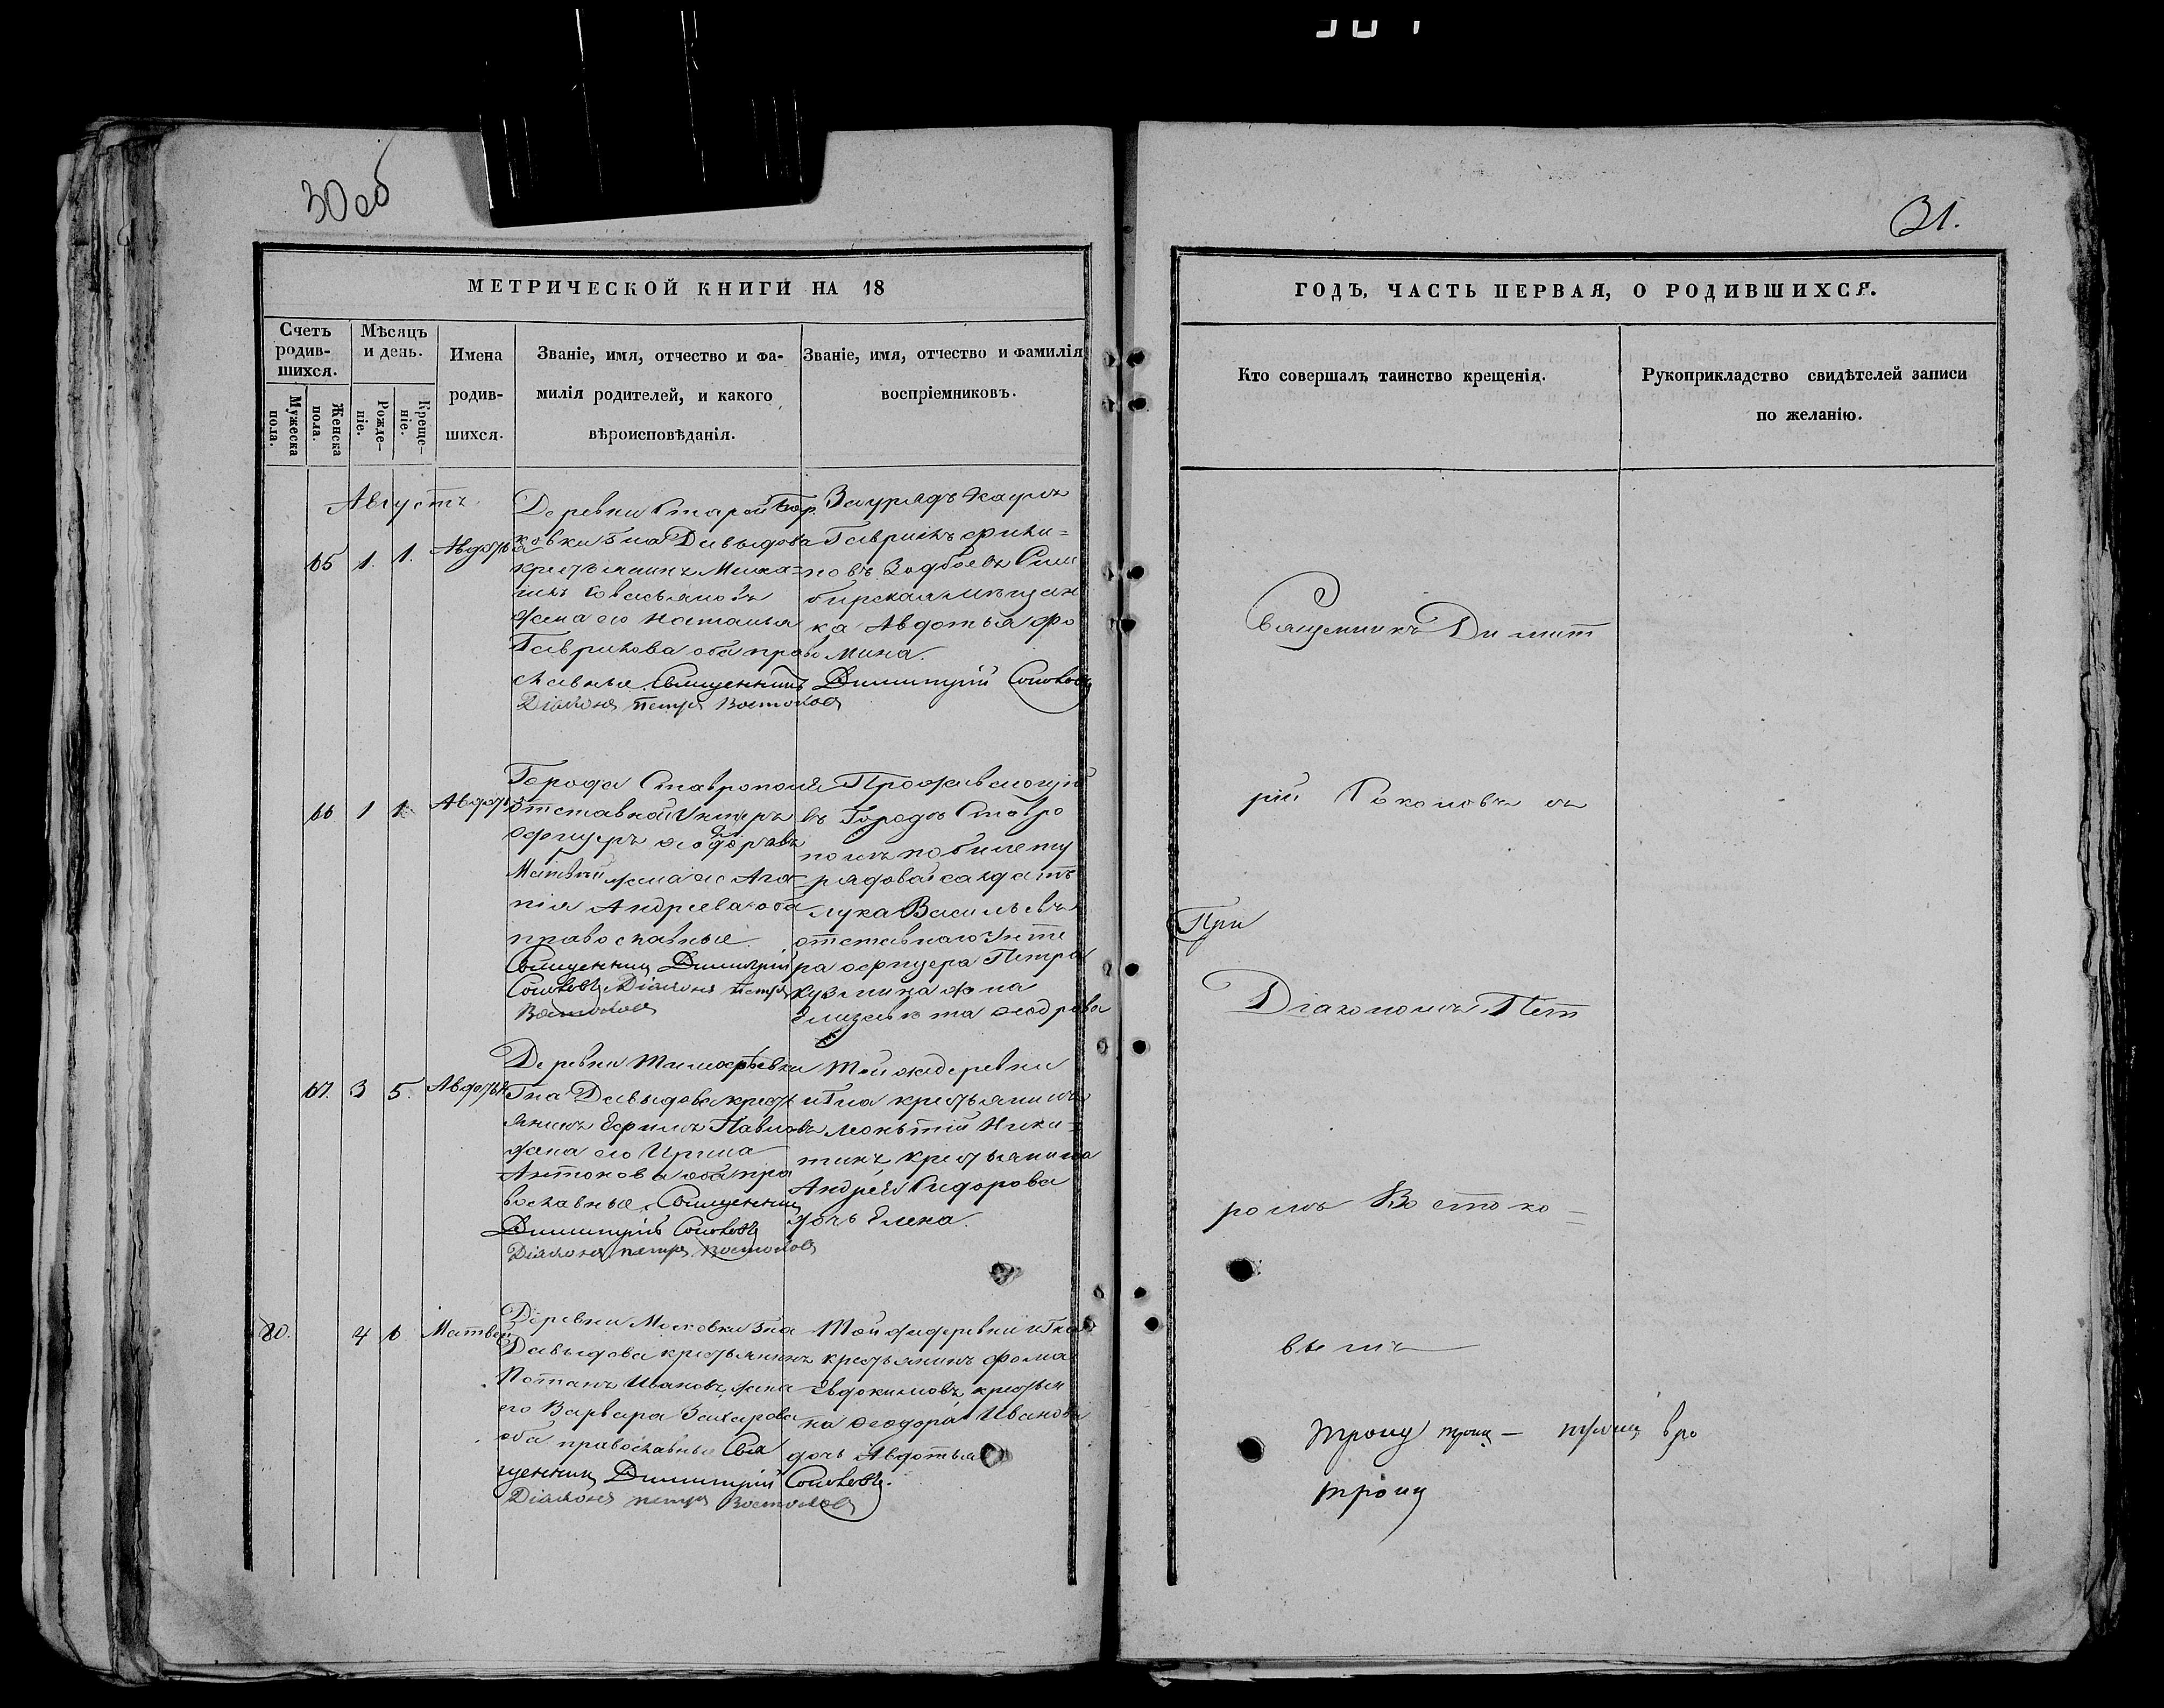 30 об
31.
МЕТРИЧЕСКОЙ КНИГИ НА 18
ГОДЪ, ЧАСТЬ ПЕРВАЯ, О РОДИВШИХСЯ.
Счетъ родив-шихся.
Мужеска пола.
Женска пола.
Мѣсяцъ и день.
Рожде-ніе.
Креще-ніе.
Имена
родив-
шихся.
Званіе, имя, отчество и фа-
милія родителей, и какого
вѣроисповѣданія.
Званіе, имя, отчество и фамилія
воспріемниковъ.
Кто совершалъ таинство крещенія.
Рукоприкладство свидѣтелей записи
по желанію.
Августъ
65 1. 1. Авдотья
Деревни Старой
ковки Гна Давыдова
крестьянинъ Миха=
илъ
жена его Наталья
Гаврилова оба право
славные. Священникъ Димитрій Соколовъ
Діаконъ Петръ Востоковъ
Заурядъ
Гаврилъ Фили=
повъ Сим
бирская мещан
ка Авдотья Фо
мина.
66 1 1 Авдотья
Города Ставрополя
отставной Унтеръ
офицеръ Феодоровъ
Матвѣй жена его Ага
пія Андреева оба
православные.
Священникъ Димитрій
Соколовъ Діаконъ Петръ
Востоковъ
Проживающій
въ Городѣ Ставро
полѣ по билету
рядовой салдатъ
Лука Васильевъ
отставнаго Унте
ра офицера Петра
Кузмина жена
Елизавета Феодрова
67. 3 5. Авдотья
Деревни Тимофѣевки
Гна Давыдова кресть
янинъ Ефимъ Павловъ
жена его Ирина
Антонова оба пра
вославные. Священникъ
Димитрій Соколовъ
Діаконъ Петръ Востоковъ
Той же деревни
и Гна крестьянинъ
Леонтій Ники=
тинъ крестьянина
Андрея Сидорова
дочь Елена.
80. 4 6 Матвей
Деревни Московки Гна
Давыдова крестьянинъ
Потапъ Ивановъ, жена
его Варвара Захарова
оба православные Свя
щенникъ Димитрій Соколовъ.
Діаконъ Петръ Востоковъ
Той же деревни и Гна
крестьянинъ Фома
Евдокимовъ, крестьяни
на Феодора Иванова
дочь Авдотья
Священникъ Димит
рій Соколовъ съ
При
Діакономъ Пет
ромъ Востоко=
вымъ